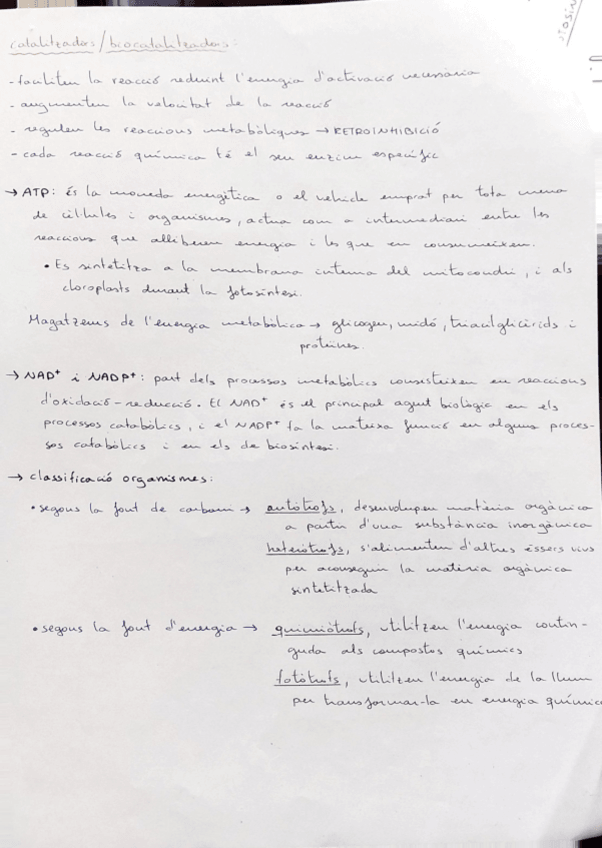 catalitzadors/biocatalitzadors:
- faciliten la reacció reduint l'energia d'activació necessària
- augmenten la velocitat de la reacció
- regulen les reaccions metabòliques → RETROINHIBICIÓ
- cada reacció química té el seu enzim específic
→ ATP: és la moneda energètica o el vehicle emprat per tota mena
de cèl·lules i organismes, actua com a intermediari entre les
reaccions que alliberen energia i les que en consumeixen.
• Es sintetitza a la membrana interna del mitocondri, i als
cloroplasts durant la fotosíntesi.
Magatzems de l'energia metabòlica → glicogen, midó, triacilglicèrids i
proteïnes.
→ NAD⁺ i NADP⁺: part dels processos metabòlics consisteixen en reaccions
d'oxidació-reducció. El NAD⁺ és el principal agent biològic en els
processos catabòlics, i el NADP⁺ fa la mateixa funció en alguns proces-
sos catabòlics i en els de biosíntesi.
→ classificació organismes:
• segons la font de carboni → autòtrofs, desenvolupen matèria orgànica
a partir d'una substància inorgànica
heteròtrofs, s'alimenten d'altres éssers vius
per aconseguir la matèria orgànica
sintetitzada
• segons la font d'energia → quimiòtrofs, utilitzen l'energia contin-
guda als compostos químics
fotòtrofs, utilitzen l'energia de la llum
per transformar-la en energia química